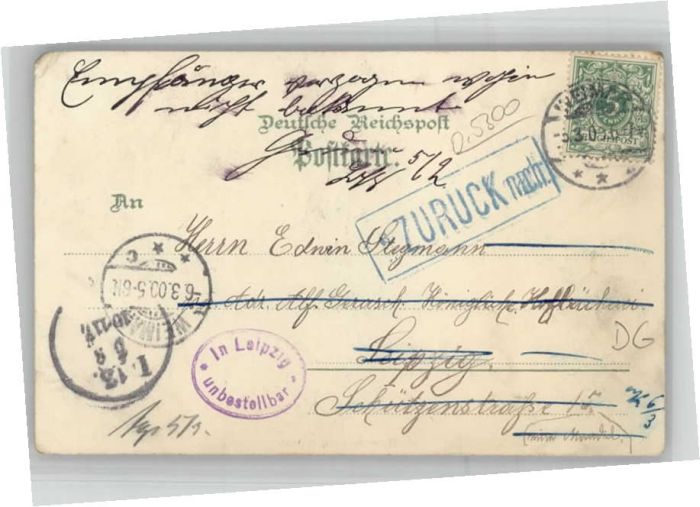 Empfänger verzogen wohin
nicht bekannt
Deutsche Reichspost
Postkarte.
5/2
D.5300
ZURÜCK nach
An
Herrn Edwin Stegmann
Adr. Alf. Gerasch Königlich. Hof
Leipzig.
Schützenstraße 15
In Leipzig
unbestellbar
6.3.00.5-6N.
DG
6/3